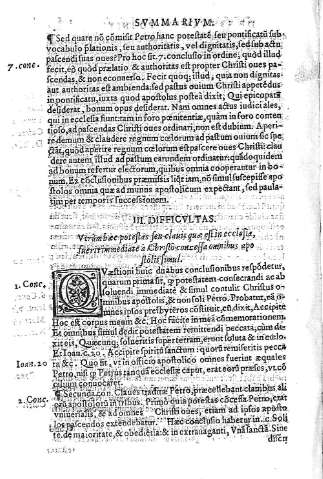 SVMMARIVM.
¶ Sed quare nō cōmisit Petro hanc potestatē seu pontificatū sub
vocabulo plationis, seu authoritatis, vel dignitatis, sed sub actu
pascendi suas oues? Pro hoc sit .7. conclusio in ordine; quòd illud
7. conc.
fecit, eò quòd prælatio & authoritas est propter Christi oues pa
scendas, & non econuerso. Fecit quoq; illud, quia non dignitas
aut authoritas est ambienda: sed pastus ouium Christi appetēdus
in pontificatu, iuxta quod apostolus postea dixit, Qui episcopatū
desiderat, bonum opus desiderat. Nam omnes actus iudiciales,
qui in ecclesia fiunt tam in foro pœnitentiæ, quàm in foro conten
tioso, ad pascendas Christi oues ordinari, non est dubium. Aperi-
re demum & claudere regnum cœlorum ad pastum ouium sic spe
ctat, quòd aperire regnum cœlorum est pascere oues Christi: clau
dere autem illud ad pastum earundem ordinatur: quādoquidem
ad bonum refertur electorum, quibus omnia cooperantur in bo-
num. Ex cōclusionibus præmissis igitur, nō simul suscepisse apo
stolos omnia quæ ad munus apostolicum expectant, sed paula-
tim per temporis successionem.
III. DIFFICVLTAS.
Vtrùm hæc potestas seu clauis quæ est in ecclesia,
fuerit immediatè à Christo concessa omnibus apo
stolis simul.
QVæstioni huic duabus conclusionibus respōdetur,
1. Conc.
quarum prima sit, φ potestatem consecrandi ac ab
soluendi immediatè & simul contulit Christus o-
mnibus apostolis, & non soli Petro. Probatur, ea
mnes ipsos presbyteros cōstituit, cū dixit, Accipite
Hoc est corpus meum &c. Hoc facite in meā commemorationem.
Et omnibus simul dedit potestatem remittendi peccata, cùm di-
xit eis, Quæcunq; solueritis super terram, erunt soluta & in cœlo.
Et Ioan. c. 20. Accipite spiritū sanctum: quorū remiseritis pecca
Ioan. 20
ta &c. Quo sit, vt in officio apostolico omnes fuerint æquales
Petro, nisi φ Petrus tanquā ecclesiæ caput, erat eorū præses, vt cō
cilium conuocaret.
¶ Secunda con. Claues traditæ Petro, præcellebant clauibus ali
2. Conc.
orū apostolorū in tribus. Primò quia potestas cōcessa Petro, erat
vniuersalis, & ad omnes Christi oues, etiam ad ipsos aposto
los pascendos extendebatur. Hæc conclusio habetur in .c. Soli
te. de maioritate, & obediētia: & in extrauaganti, Vnā sanctā. Sine